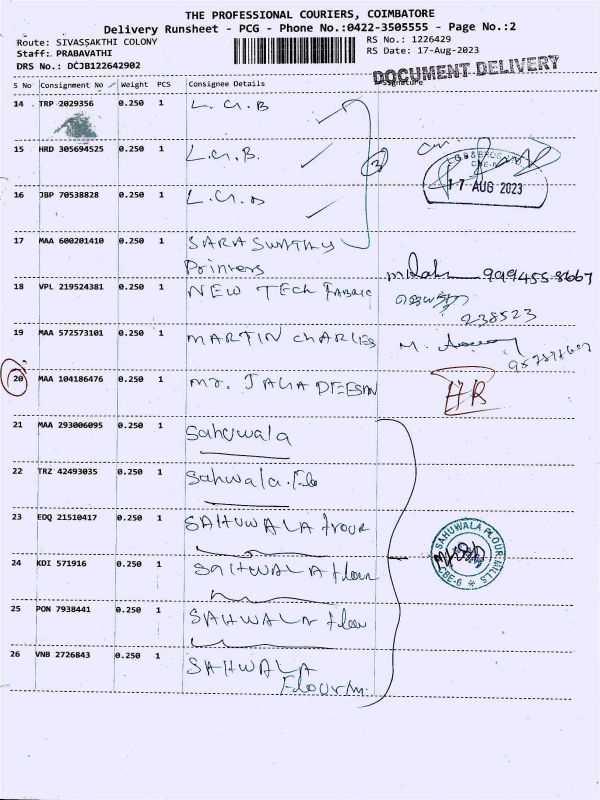 THE PROFESSIONAL COURIERS, COIMBATORE
Delivery Runsheet - PCG - Phone No.:0422-3505555 - Page No.:2
Route: SIVASSAKTHI COLONY RS No.: 1226429
Staff: PRABAVATHI RS Date: 17-Aug-2023
DRS No.: DCJB122642902
DOCUMENT DELIVERY
S No Consignment No Weight PCS Consignee Details Signature
14 TRP 2029356 0.250 1 L.G.B
15 HRD 305694525 0.250 1 L.G.B.
3
17 AUG 2023
16 JBP 70538828 0.250 1 L.G.B
17 MAA 600201410 0.250 1 SARASWATHY
Printers 9994558667
18 VPL 219524381 0.250 1 NEW TECH FABRIC
238523
19 MAA 572573101 0.250 1 MARTIN CHARLES M.
20 MAA 104186476 0.250 1 Mr. JAGADEESAN
21 MAA 293006095 0.250 1 Sahuwala
22 TRZ 42493035 0.250 1 Sahwala. Flo
23 EDQ 21510417 0.250 1 SAHUWALA flour
SAHUWALA FLOUR MILLS
CBE-6
24 KDI 571916 0.250 1 SAHWALA flour
25 PON 7938441 0.250 1 SAHWALA flow
26 VNB 2726843 0.250 1 SAHWALA
Flour M.